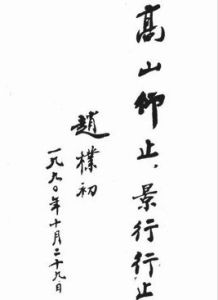 高山仰止，景行行止
趙樸初
一九九〇年十月二十九日